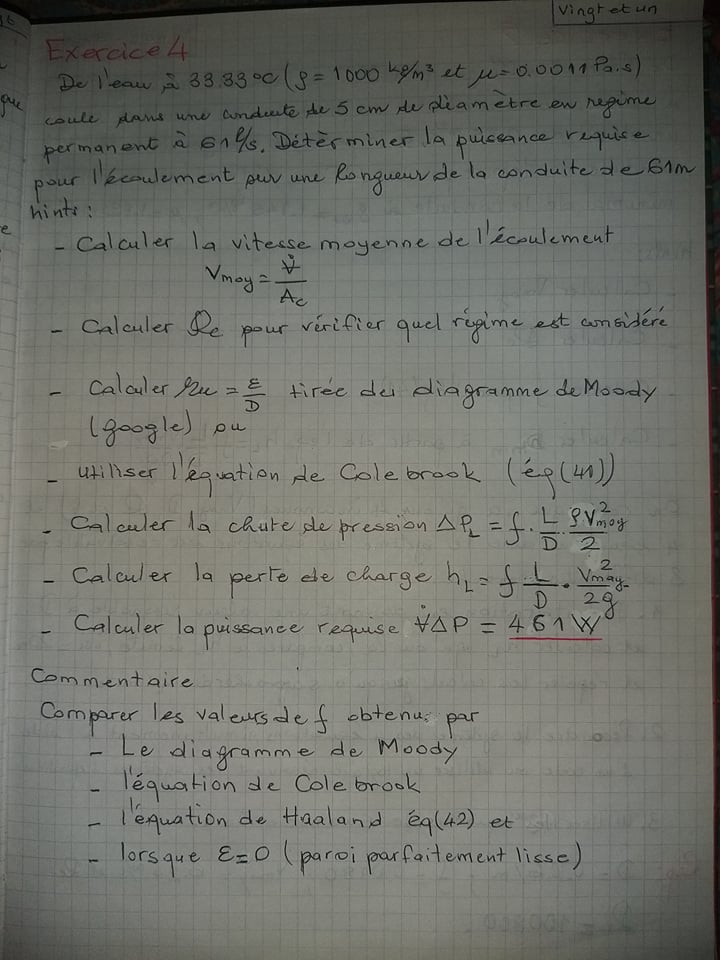 Vingt et un
Exercice 4
De l'eau à 33.33°C (ρ = 1000 kg/m³ et μ = 0.0011 Pa.s)
coule dans une conduite de 5 cm de diamètre en regime
permanent à 61 l/s. Détèrminer la puissance requise
pour l'écoulement sur une longueur de la conduite de 61m
hints :
- Calculer la vitesse moyenne de l'écoulement
Vmoy = V̇/Ac
- Calculer Re pour vérifier quel régime est considéré
- Calculer = ε/D tirée du diagramme de Moody
(google) ou
- utiliser l'équation de Colebrook (éq(41))
- Calculer la chute de pression ΔP_L = f . L/D . ρV²moy/2
- Calculer la perte de charge h_L = f L/D . V²moy/2g
- Calculer la puissance requise V̇ΔP = 461 W
Commentaire
Comparer les valeurs de f obtenus par
- Le diagramme de Moody
- l'équation de Colebrook
- l'équation de Haaland éq(42) et
- lorsque ε=0 (paroi parfaitement lisse)